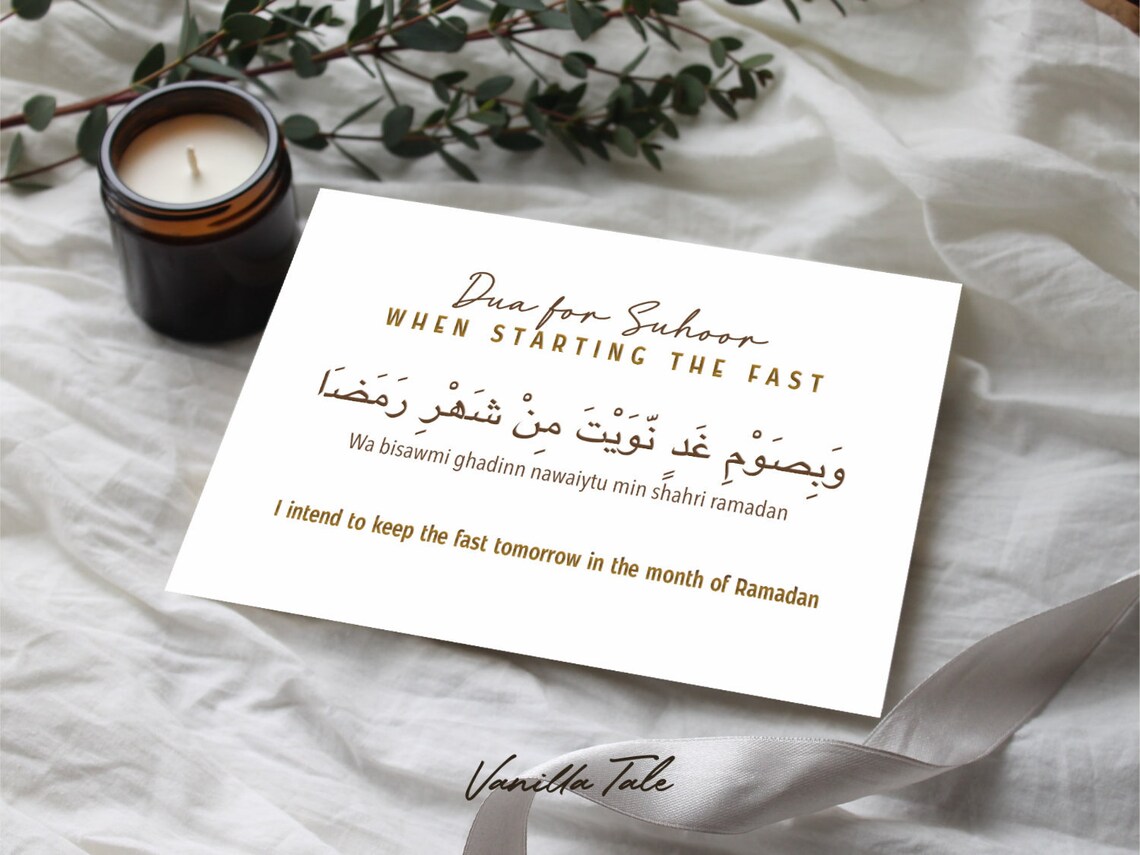 Dua for Suhoor
WHEN STARTING THE FAST
وَبِصَوْمِ غَدٍ نَّوَيْتَ مِنْ شَهْرِ رَمَضَا
Wa bisawmi ghadinn nawaiytu min shahri ramadan
I intend to keep the fast tomorrow in the month of Ramadan
Vanilla Tale